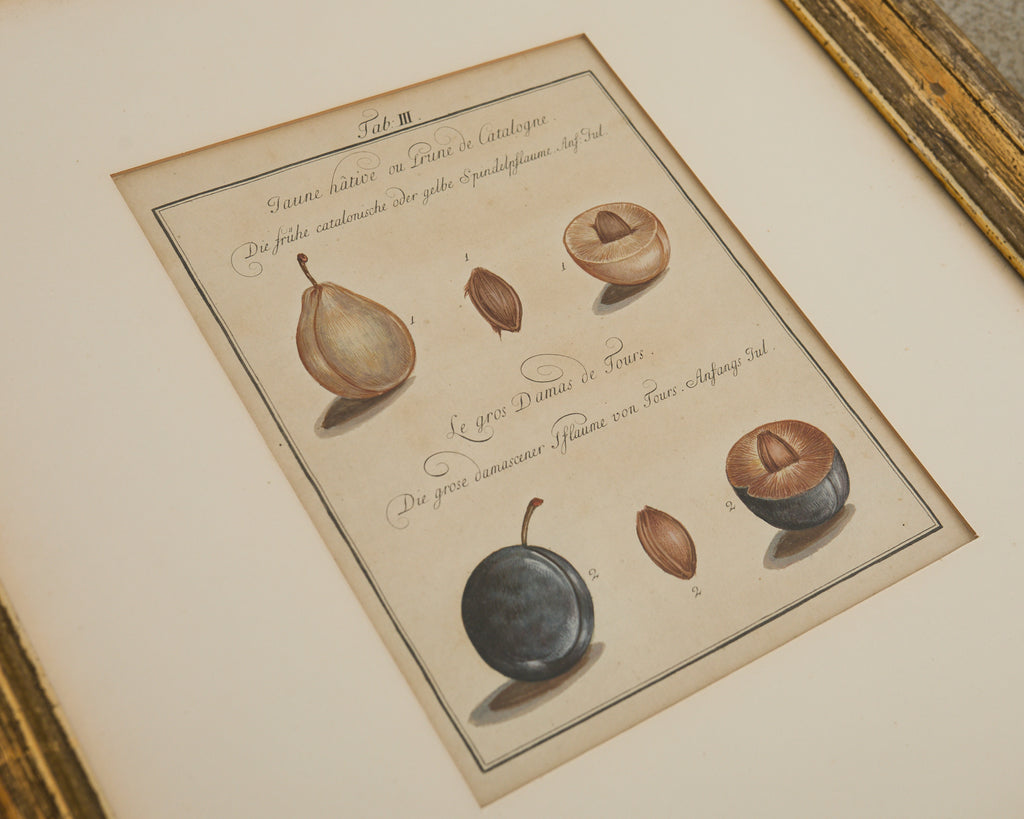 Tab. III.
Jaune hâtive ou Prune de Catalogne.
Die frühe catalonische oder gelbe Spindelpflaume. Anf. Jul.
1
1
1
Le gros Damas de Tours.
Die grose damascener Pflaume von Tours. Anfangs Jul.
2
2
2